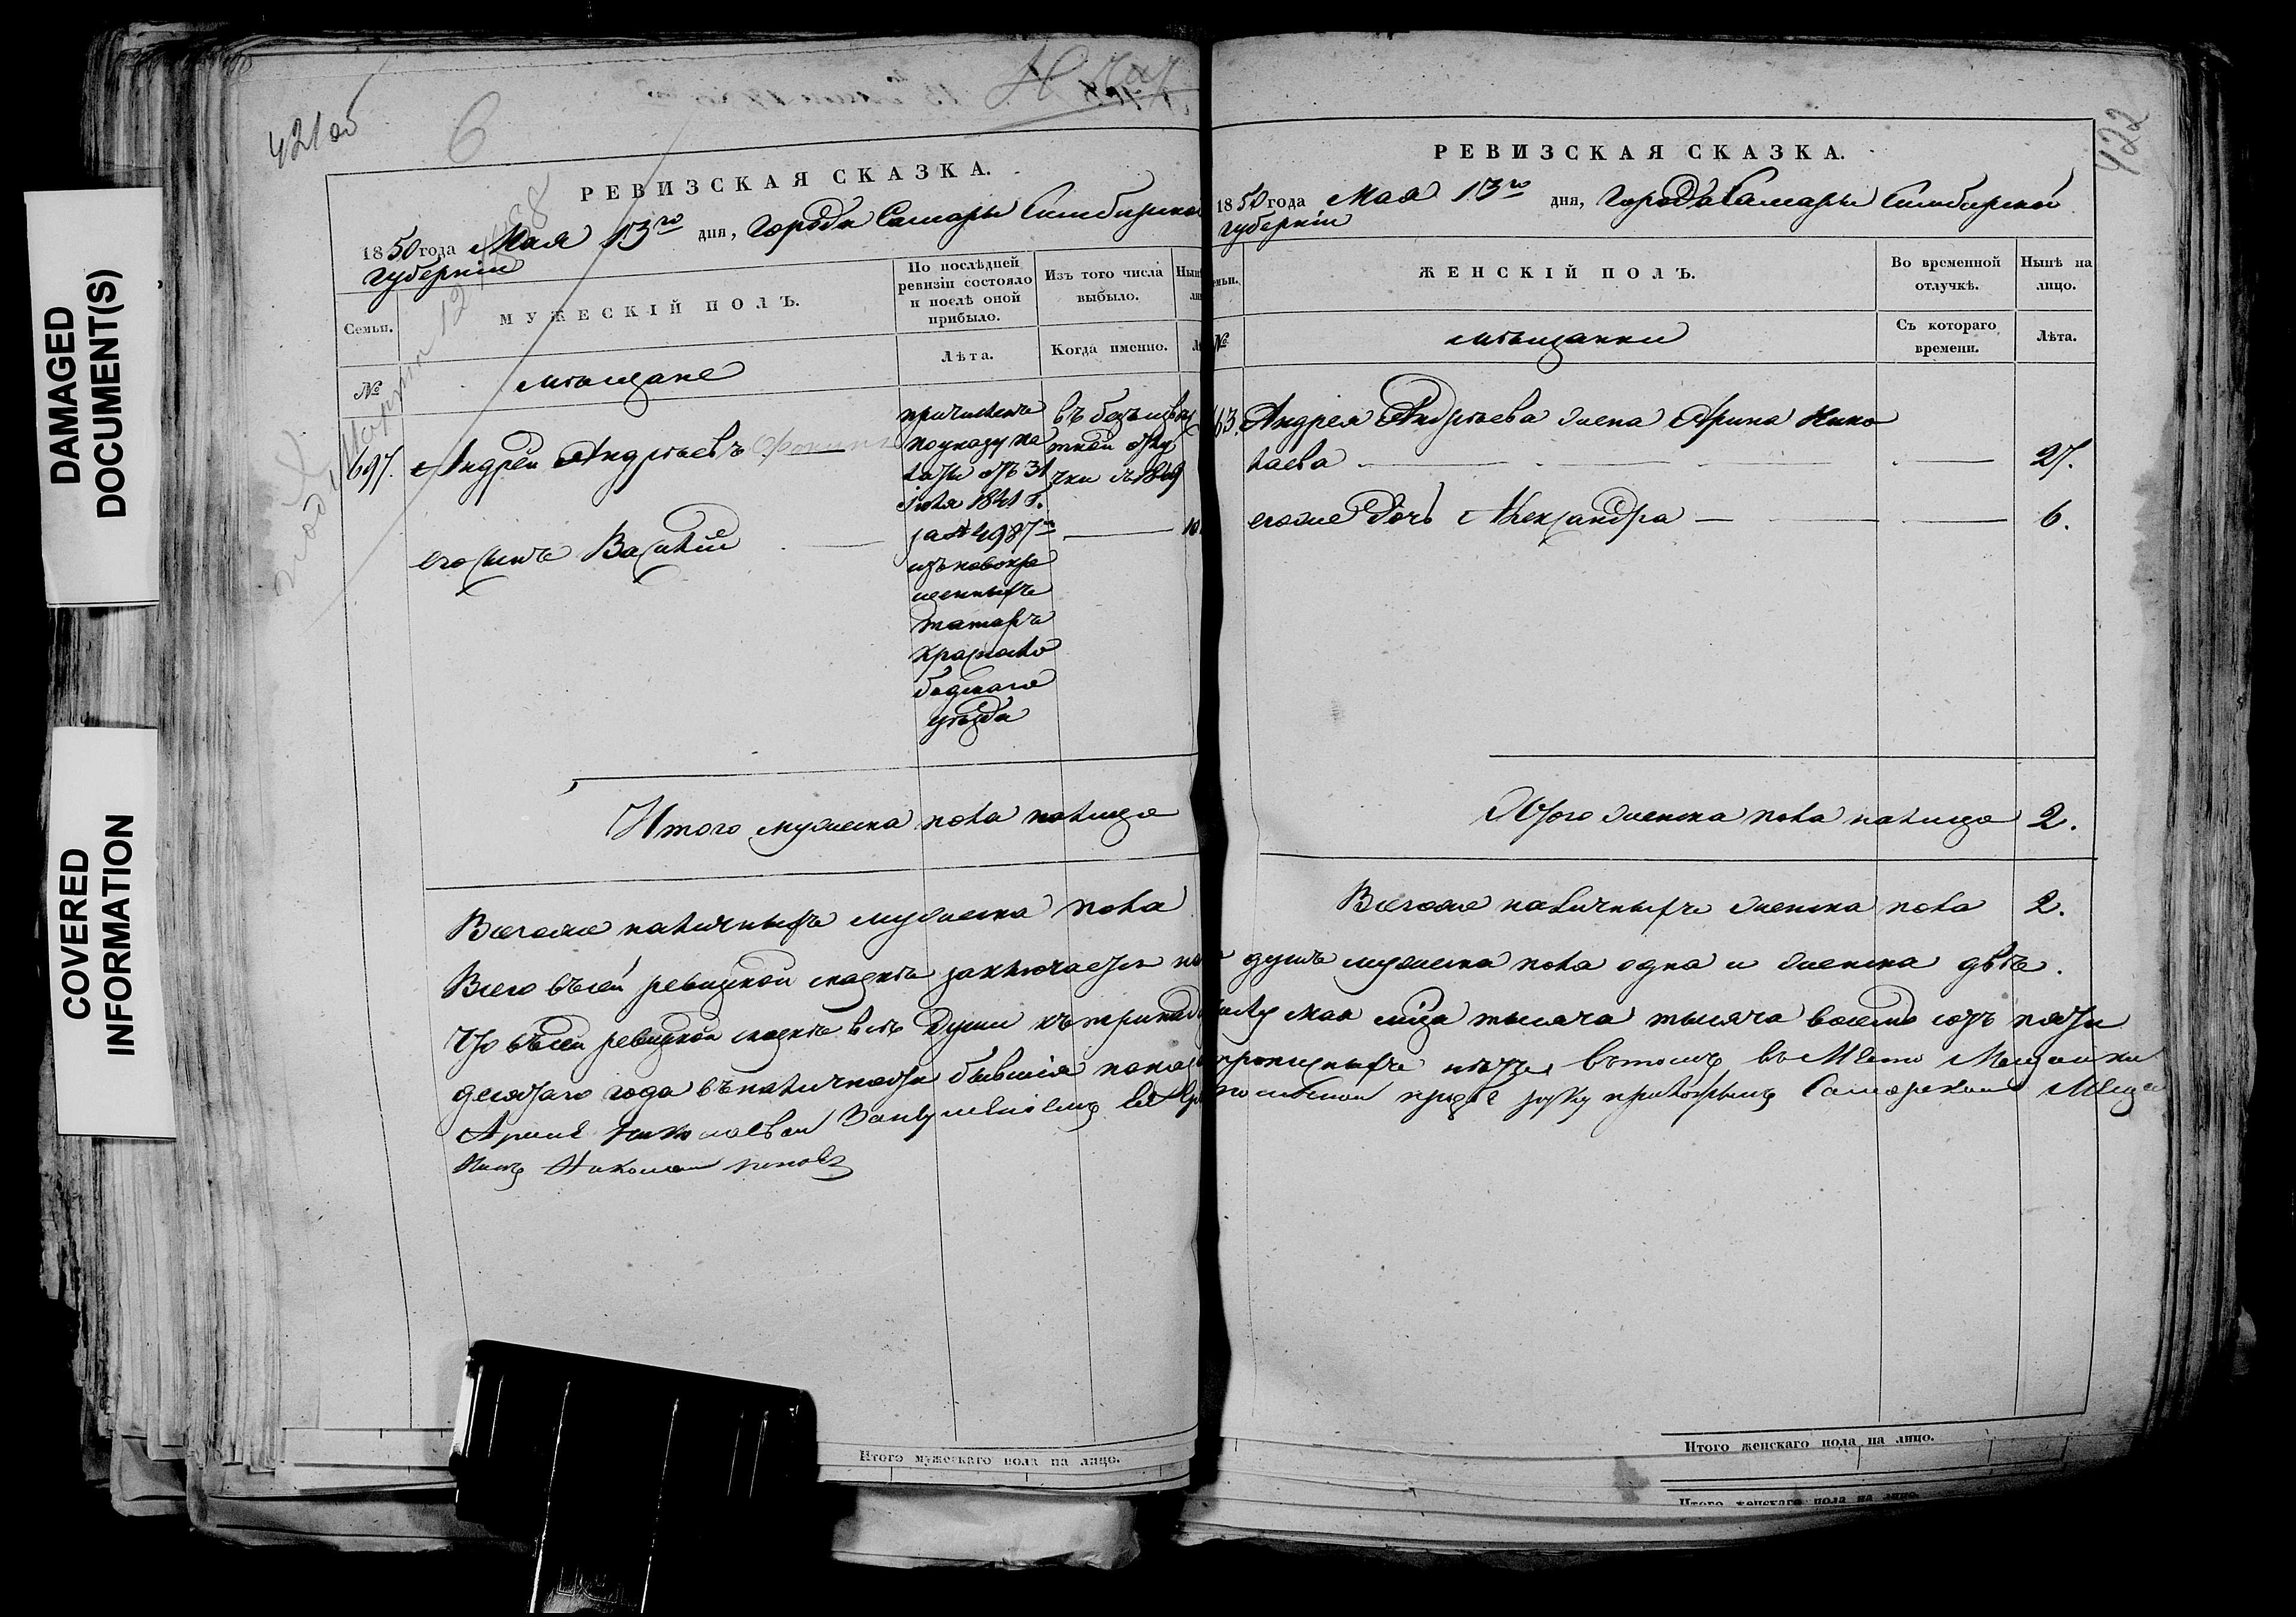 DAMAGED
DOCUMENT(S)
COVERED
INFORMATION
421 об
6
РЕВИЗСКАЯ СКАЗКА.
1850 года Мая 13го дня, Города Самары Симбирской
губерніи
Семьи.
МУЖЕСКІЙ ПОЛЪ.
По послѣдней
ревизіи состояло
и послѣ оной
прибыло.
Изъ того числа
выбыло.
№
Лѣта.
Когда именно.
мѣщане
697. Андрей Андреевъ
причисленъ
по указу па
латы отъ 31
Іюля 1841 г.
за № 4987м
изъ новокре
щенныхъ
татаръ
Красносло
бодскаго
уѣзда
въ безъизвѣс
тной отлу
чки съ 1849
его сынъ Василій
10
Итого мужеска пола налицо
Всего же наличныхъ мужеска пола
422
РЕВИЗСКАЯ СКАЗКА.
1850 года Мая 13го дня, Города Самары Симбирской
губерніи
ЖЕНСКІЙ ПОЛЪ.
Во временной
отлучкѣ.
Нынѣ на
лицо.
№
мѣщанки
Съ котораго
времени.
Лѣта.
Андрея Андреева жена Арина Нико
лаева 27.
его же дочь Александра 6.
Итого женска пола налицо 2.
Всего же наличныхъ женска пола 2.
Всего въ сей ревизской сказкѣ заключается душъ мужеска пола одна и женска двѣ.
Что въ сей ревизской сказкѣ всѣ души къ тринад Мая мца тысяча тысяча восемь сотъ пять
десятаго года въ наличности бывшія прописныхъ нѣтъ въ томъ въ Мѣсто Мещанки
Арине Николаевой
Николай Поповъ
Итого мужескаго пола на лицо.
Итого женскаго пола на лицо.
Итого женскаго пола на лицо.